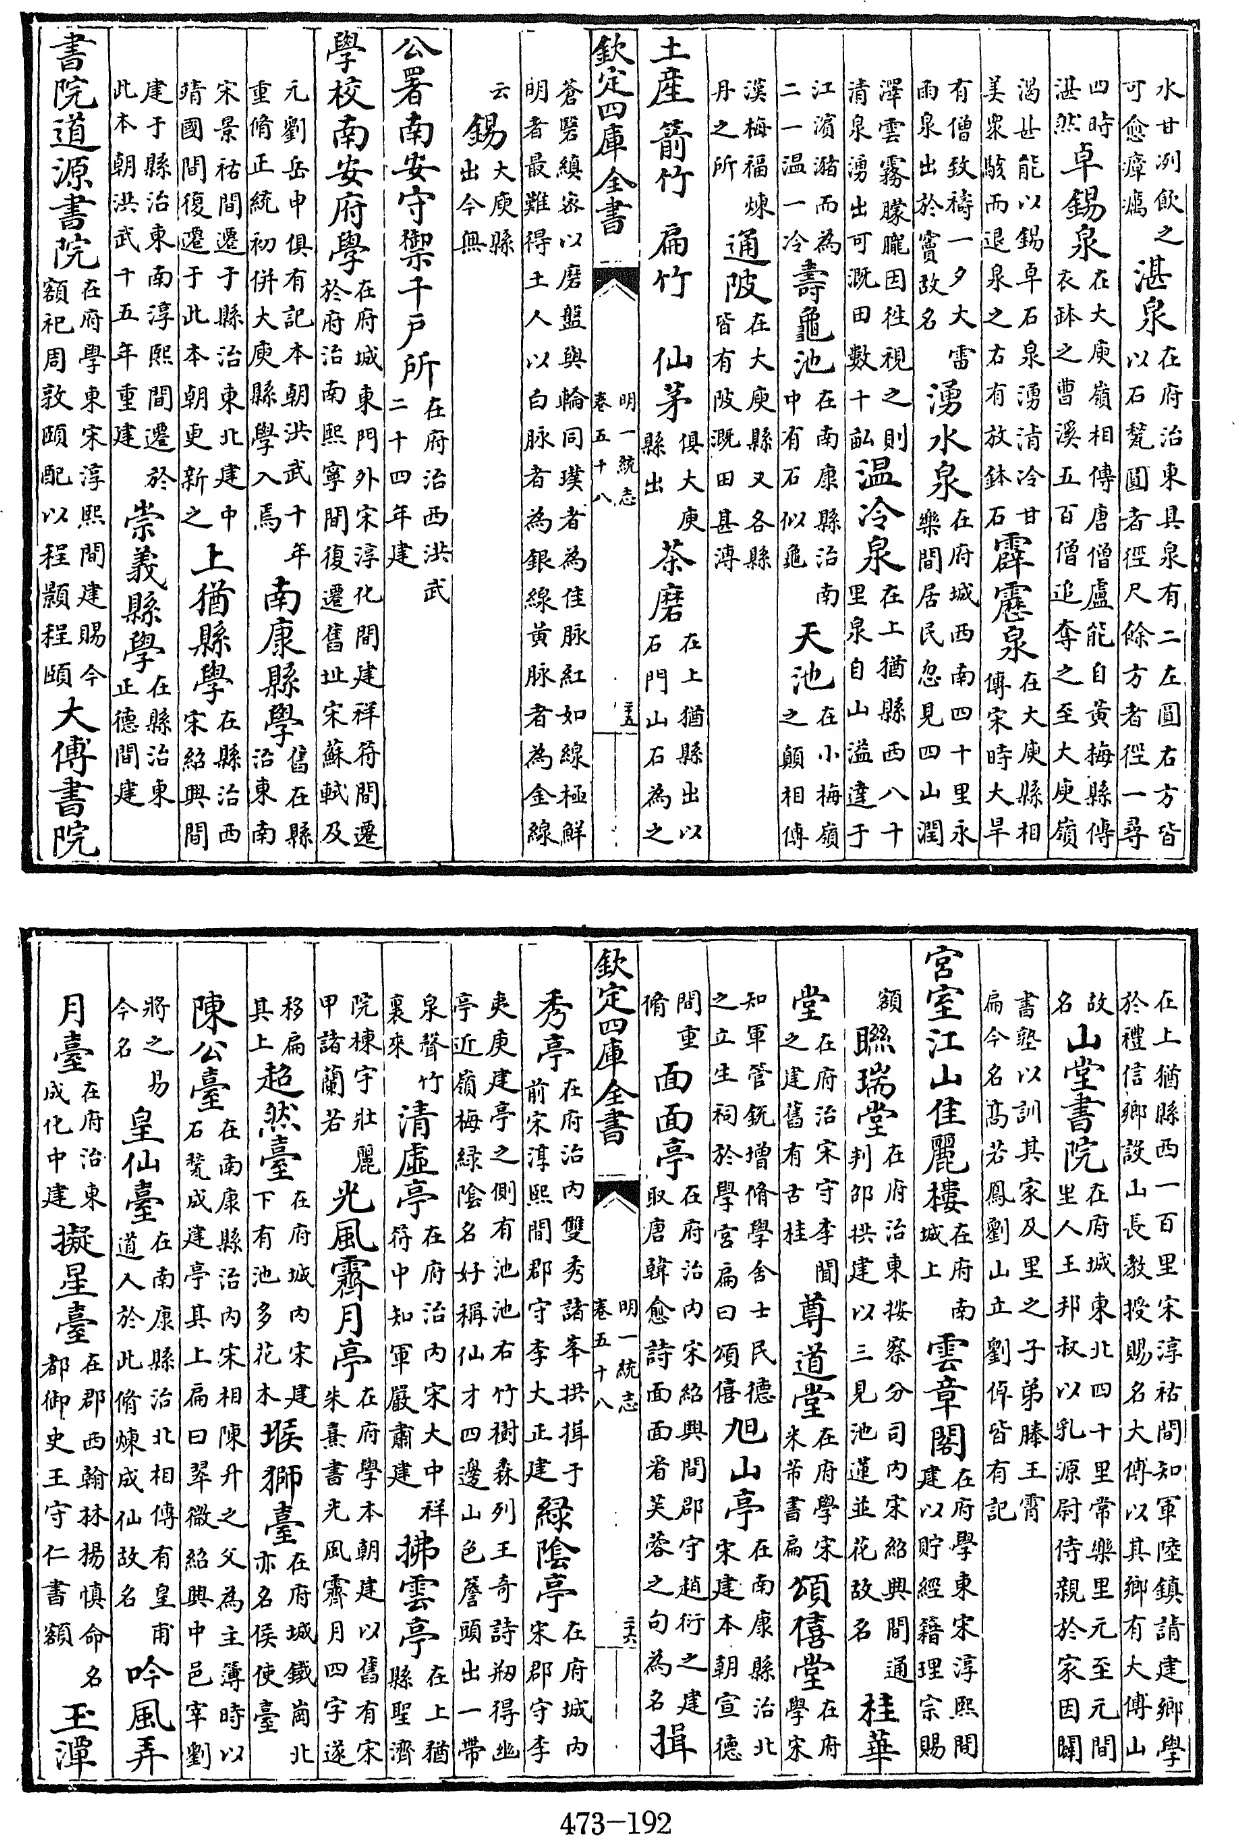 水甘冽飲之可愈瘴癘湛泉在府治東具泉有二左圓右方皆以石甃圓者徑尺餘方者徑一尋
四時湛然卓錫泉在大庾嶺相傳唐僧盧能自黄梅縣傳衣鉢之曹溪五百僧追奪之至大庾嶺
渴甚能以錫卓石泉湧清冷甘美衆駭而退泉之右有放鉢石霹靂泉在大庾縣相傳宋時大旱
有僧致禱一夕大雷雨泉出於竇故名湧水泉在府城西南四十里永樂間居民忽見四山潤
澤雲霧朦朧因往視之則清泉湧出可溉田數十畝温冷泉在上猶縣西八十里泉自山溢達于
江濱潴而為二一温一冷壽龜池在南康縣治南中有石似龜天池在小梅嶺之顛相傳
漢梅福煉丹之所通陂在大庾縣又各縣皆有陂溉田甚溥
土産箭竹 扁竹 仙茅俱大庾縣出茶磨在上猶縣出以石門山石為之
欽定四庫全書 明一統志卷五十八 二五
蒼礜縝宻以磨盤與輪同璞者為佳脉紅如線極鮮明者最難得土人以白脉者為銀線黄脉者為金線
云錫大庾縣出今無
公署南安守禦千户所在府治西洪武二十四年建
學校南安府學在府城東門外宋淳化間建祥符間遷於府治南熙寧間復遷舊址宋蘇軾及
元劉岳申俱有記本朝洪武十年重脩正統初併大庾縣學入焉南康縣學舊在縣治東南
宋景祐間遷于縣治東北建中靖國間復遷于此本朝更新之上猶縣學在縣治西宋紹興間
建于縣治東南淳熙間遷於此本朝洪武十五年重建崇義縣學在縣治東正德間建
書院道源書院在府學東宋淳熙間建賜今額祀周敦頤配以程顥程頤大傅書院
在上猶縣西一百里宋淳祐間知軍陸鎮請建鄉學於禮信鄉設山長教授賜名大傅以其鄉有大傅山
故名山堂書院在府城東北四十里常樂里元至元間里人王邦叔以乳源尉侍親於家因闢
書塾以訓其家及里之子弟滕王霄扁今名髙若鳳劉山立劉倬皆有記
宮室江山佳麗樓在府南城上雲章閣在府學東宋淳熙間建以貯經籍理宗賜
額聮瑞堂在府治東按察分司内宋紹興間通判邵拱建以三見池蓮並花故名桂華
堂在府治宋守李聞之建舊有古桂尊道堂在府學宋米芾書扁頌僖堂在府學宋
知軍管銳增脩學舍士民德之立生祠於學宫扁曰頌僖旭山亭在南康縣治北宋建本朝宣德
間重脩面面亭在府治内宋紹興間郡守趙衍之建取唐韓愈詩面面看芙蓉之句為名揖
欽定四庫全書 明一統志卷五十八 二六
秀亭在府治内雙秀諸峯拱揖于前宋淳熙間郡守李大正建緑陰亭在府城内宋郡守李
夷庚建亭之側有池池右竹樹森列王奇詩刱得幽亭近嶺梅緑陰名好稱仙才四邊山色簷頭出一帶
泉聲竹裏來清虛亭在府治内宋大中祥符中知軍嚴肅建拂雲亭在上猶縣聖濟
院棟宇壯麗甲諸蘭若光風霽月亭在府學本朝建以舊有宋朱熹書光風霽月四字遂
移扁其上超然臺在府城内宋建下有池多花木堠獅臺在府城鐵崗北亦名侯使臺
陳公臺在南康縣治内宋相陳升之父為主簿時以石甃成建亭其上扁曰翠微紹興中邑宰劉
將之易今名皇仙臺在南康縣治北相傳有皇甫道人於此脩煉成仙故名吟風弄
月臺在府治東成化中建擬星臺在郡西翰林揚慎命名都御史王守仁書額玉潭
473-192